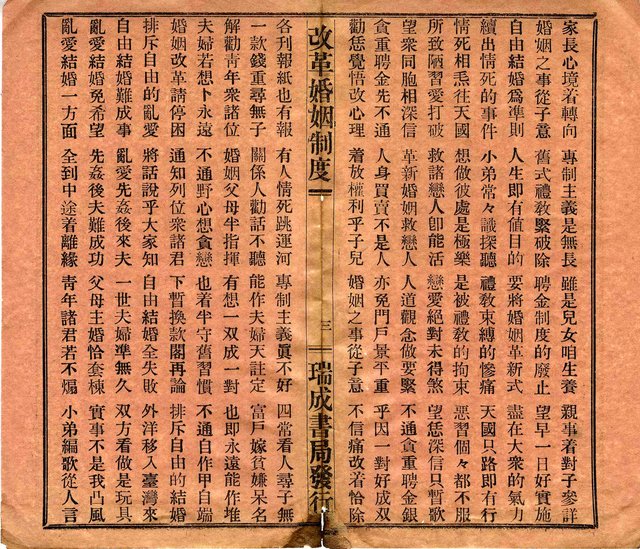 家長心境着轉向 專制主義是無長 雖是兒女咱生養 親事着對子參詳
婚姻之事從子意 舊式禮教緊破除 聘金制度的廢止 望早一日好實施
自由結婚爲準則 人生卽有值目的 要將婚姻革新式 盡在大衆的氣力
續出情死的事件 小弟常々識探聽 禮教束縛的慘痛 天國只路卽有行
情死相𤆬往天國 想做彼處是極樂 是被禮教的拘束 惡習個々都不服
所致陋習愛打破 救諸戀人卽能活 戀愛絕對未得煞 望恁深信只暫歌
望衆同胞相深信 革新婚姻救戀人 人道觀念做要緊 不通貪重聘金銀
貪重聘金先不通 人身買賣不是人 亦免門戶景平重 乎因一對好成双
勸恁覺悟改心理 着放權利乎子兒 婚姻之事從子意 不信痛改着恰除
改革婚姻制度 三 瑞成書局發行
各刊報紙也有報 有人情死跳運河 專制主義眞不好 四常看人尋子無
一款錢重尋無子 關係人勸話不聽 能作夫婦天註定 富戶嫁貧嫌呆名
解勸青年衆諸位 婚姻父母半指揮 有想一双成一對 也卽永遠能作堆
夫婦若想卜永遠 不通野心想貪戀 也着半守舊習慣 不通自作甲自端
婚姻改革請停困 通知列位衆諸君 下暫換款閣再論 排斥自由的結婚
排斥自由的亂愛 將話說乎大家知 自由結婚全失敗 外洋移入臺灣來
自由結婚難成事 亂愛先姦後來夫 一世夫婦準無久 双方看做是玩具
亂愛結婚免希望 先姦後夫難成功 父母主婚恰套棟 實事不是我凸風
亂愛結婚一方面 全到中途着離緣 青年諸君若不煽 小弟編歌從人言